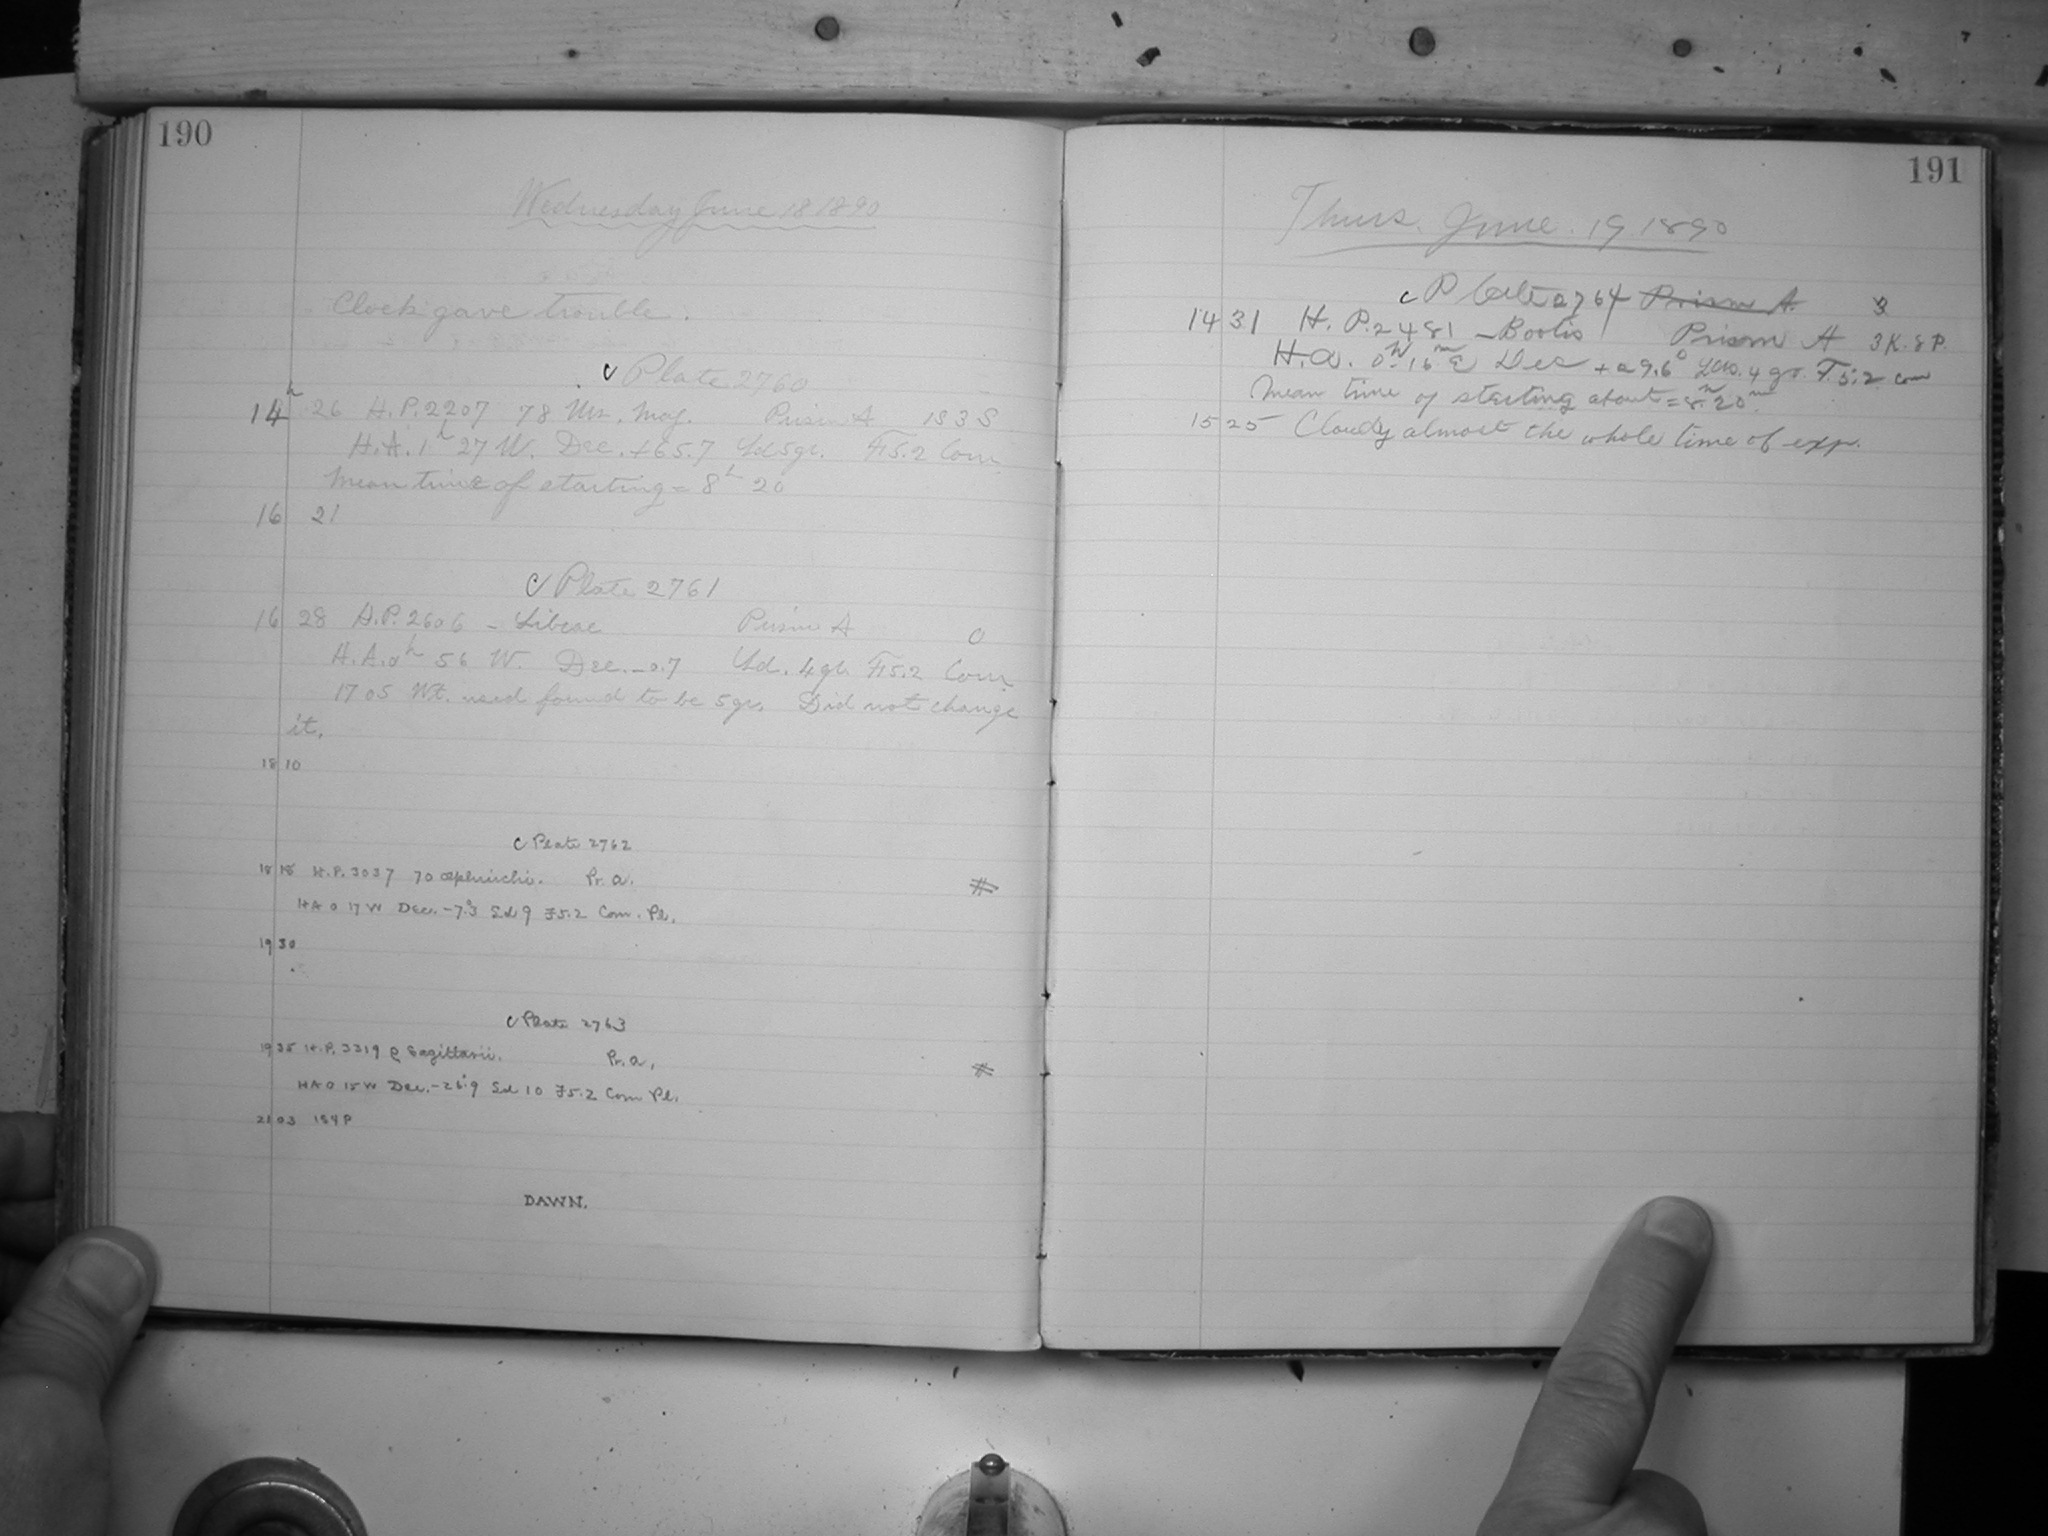 190
Wednesday June 18 1890
Clock gave trouble.
C Plate 2760
14h 26 H.P. 2207 78 Urs. Maj. Prism A 1S 3 S
H.A. 1h 27 W. Dec. +65.7 Sd 5gr. F5.2 Com
Mean time of starting = 8h 20
16 21
C Plate 2761
16 28 H.P. 2606 - Librae Prism A 0
H.A. 0h 56 W. Dec. -0.7 Sd. 4gr. F5.2 Com.
17 05 Wt. used found to be 5gr. Did not change
it.
18 10
C Plate 2762
18 18 H.P. 3037 70 Ophiuchi. Pr. a.
HA 0 17 W Dec. -7.°3 Sd 9 F5.2 Com. Pl.
19 30
C Plate 2763
19 35 H.P. 3319 Sagittarii. Pr. a.
HA 0 15 W Dec. -26.°9 Sd 10 F5.2 Com Pl.
21 03 1S4P
DAWN.
191
Thurs. June. 19 1890
C Plate 2764 Prism A. 3
14 31 H. P. 2481 - Bootis Prism A 3K. 8P.
H.a. 0h 16m E Dec +29.6° 4 gr. F. 5.2 com
Mean time of starting about = 8h 20m
15 25 Cloudy almost the whole time of exp.